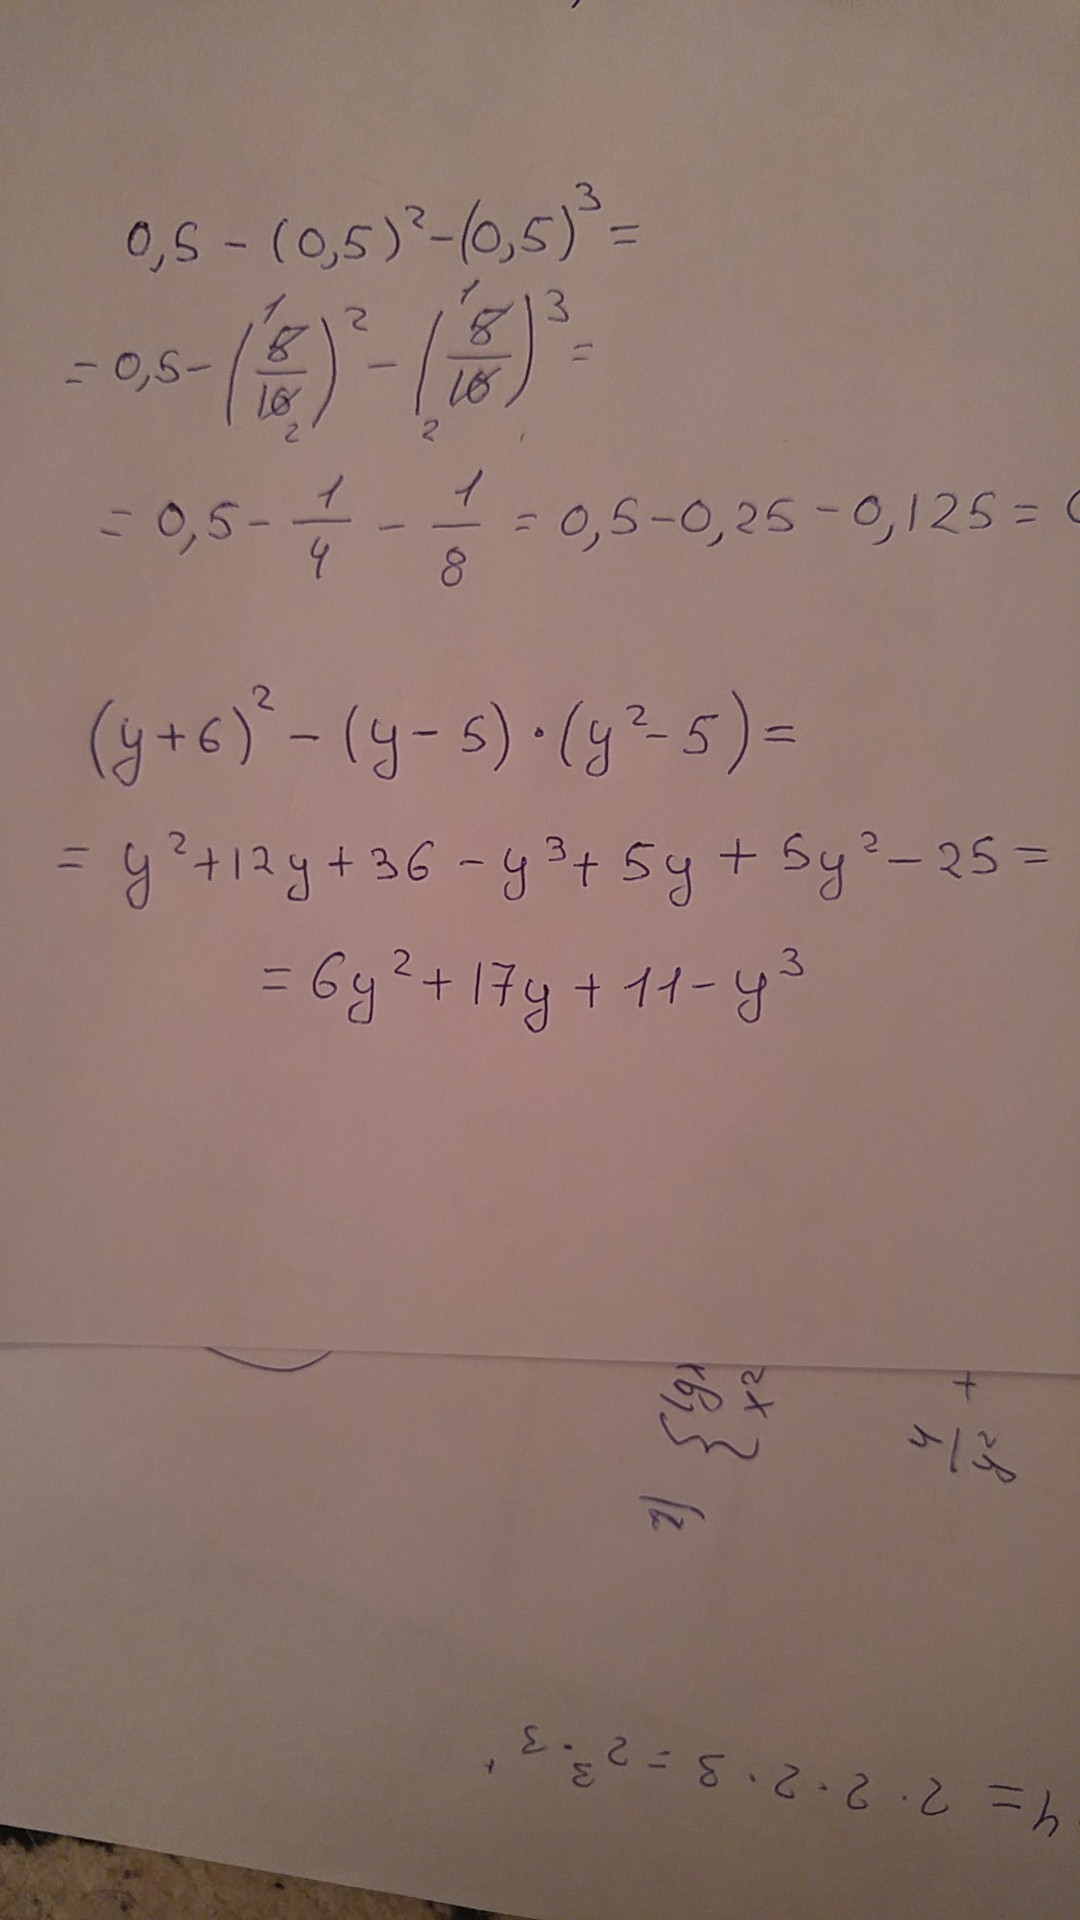 0,5 - (0,5)² - (0,5)³ =
= 0,5 - (5/10)² - (5/10)³ =
= 0,5 - 1/4 - 1/8 = 0,5 - 0,25 - 0,125 =
(y+6)² - (y-5)·(y²-5) =
= y² + 12y + 36 - y³ + 5y + 5y² - 25 =
= 6y² + 17y + 11 - y³
2) {lg
x²
+
4/y²
4 = 2·2·2·3 = 2³·3